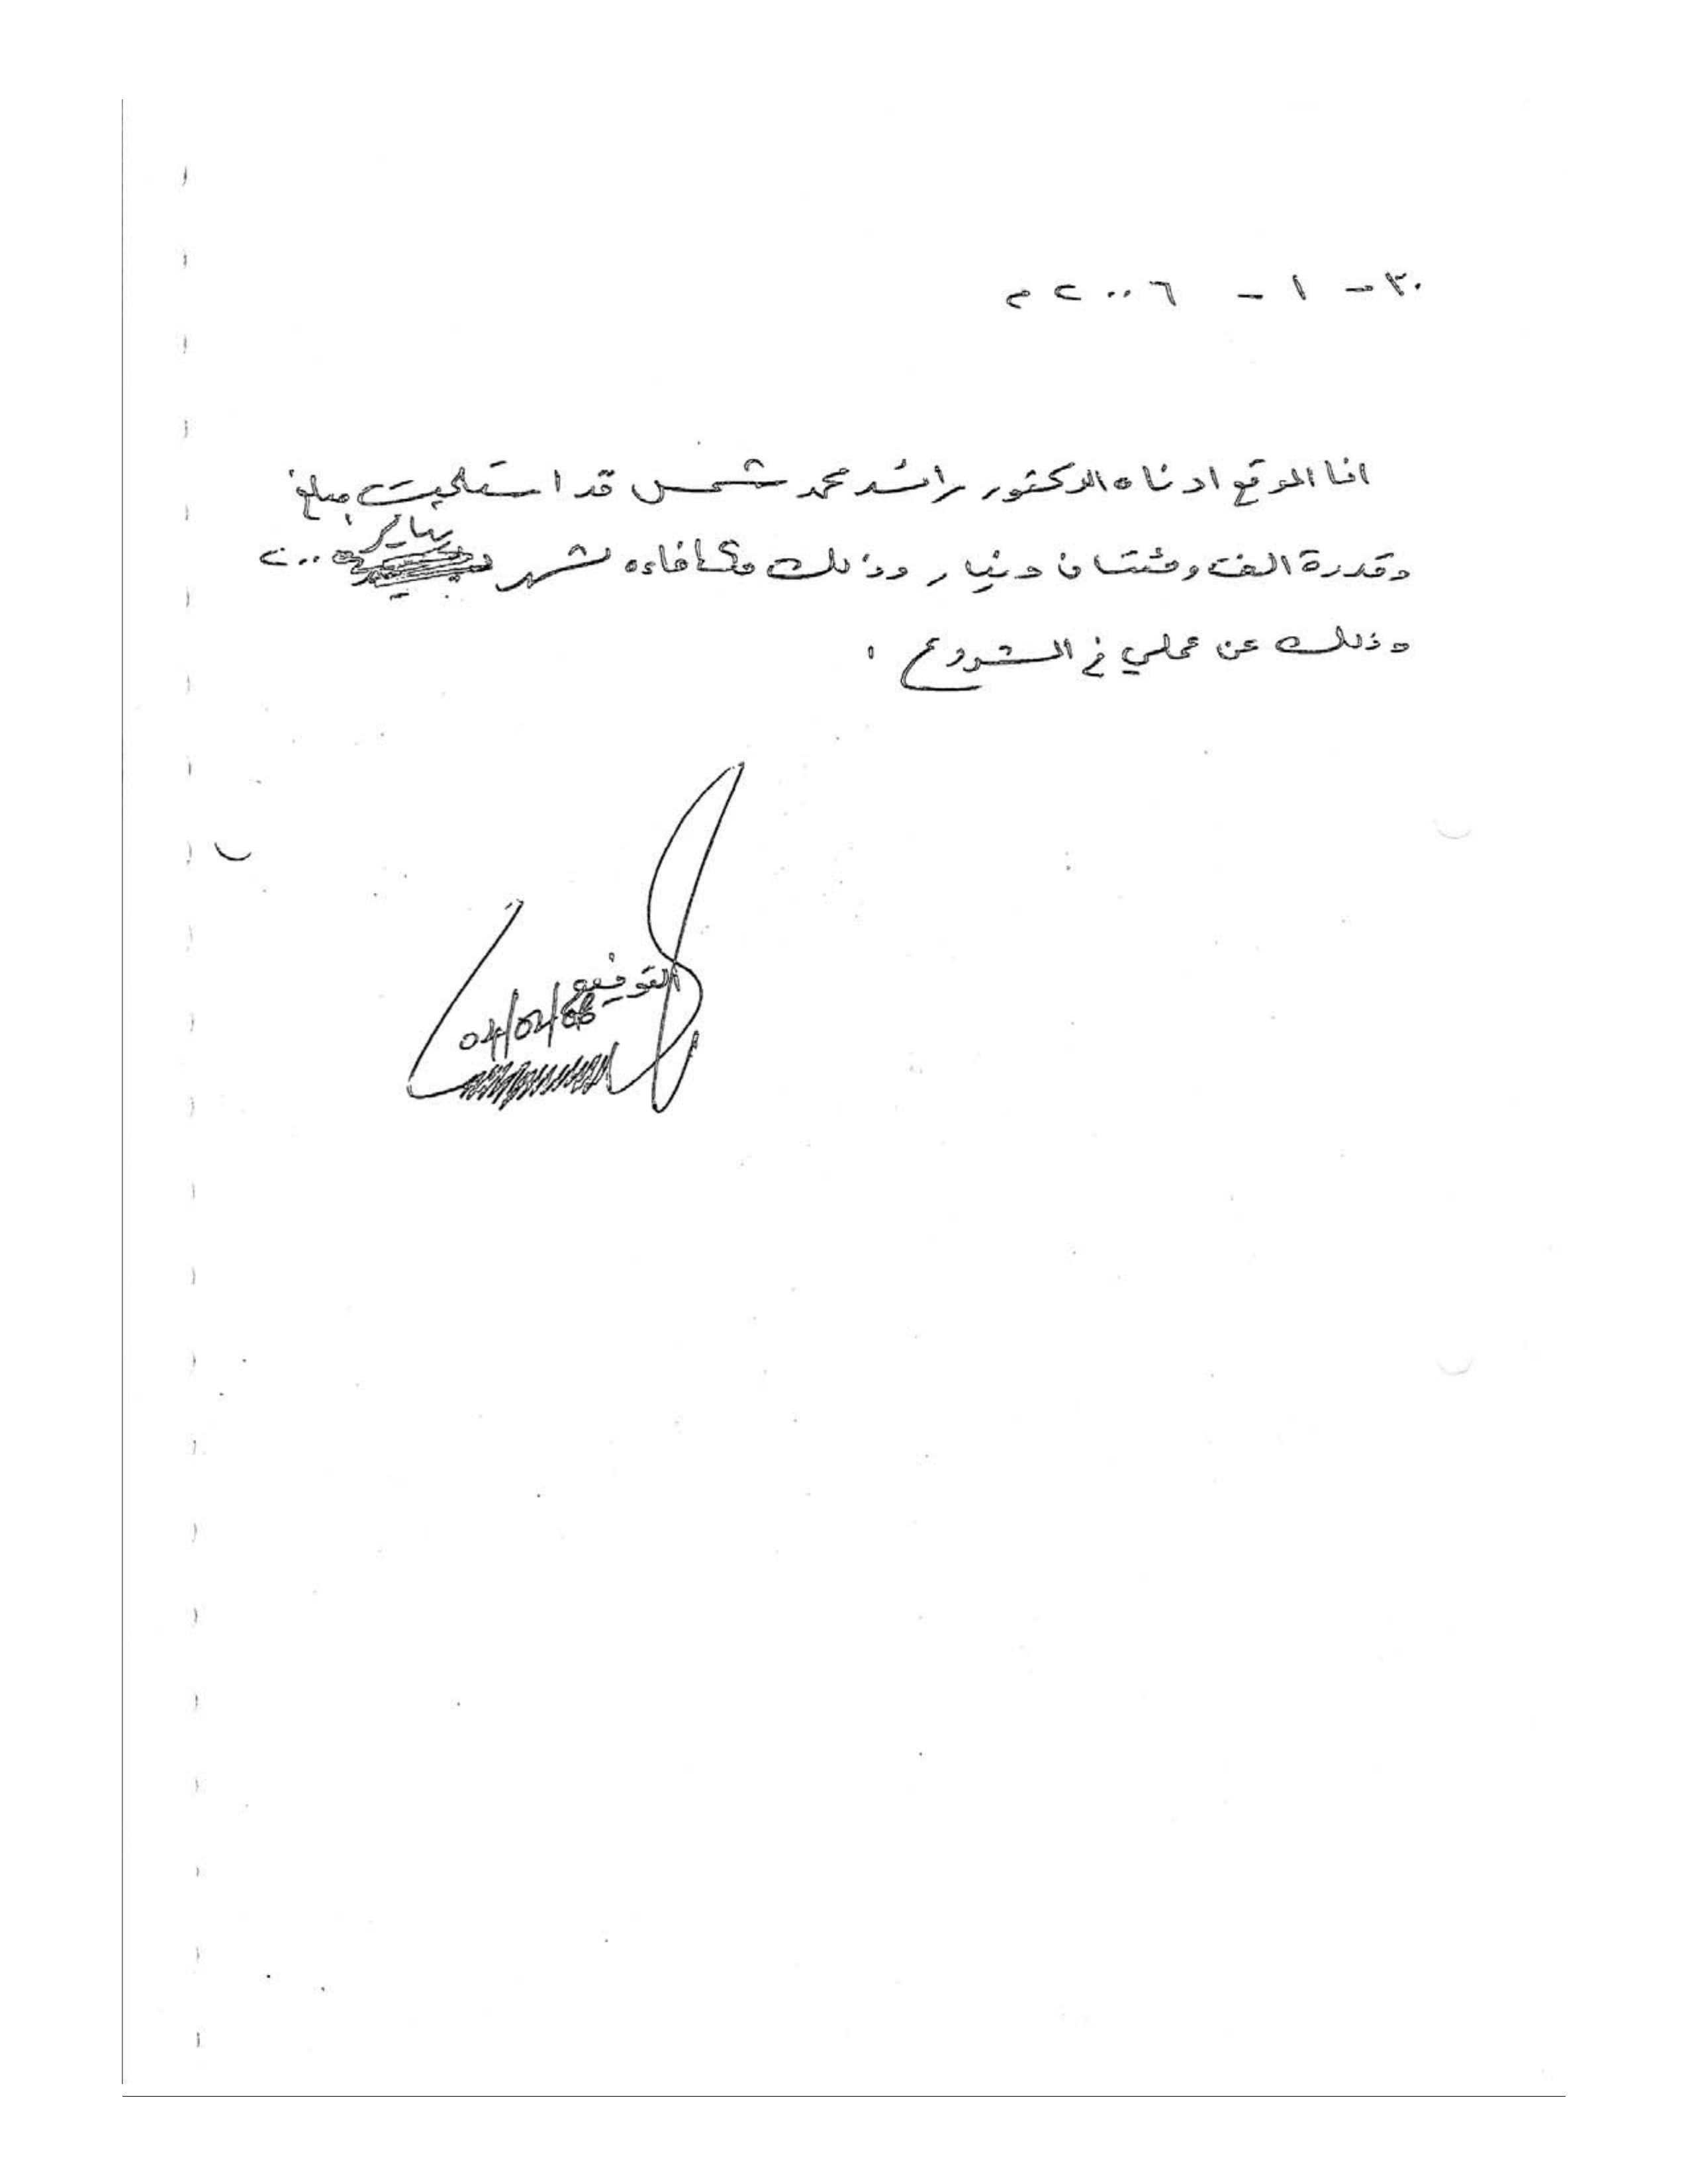 ٣٠ - ١ - ٢٠٠٦ م
انا الموقع ادناه الدكتور رائد محمد شمس قد استلمت مبلغ
وقدرة الف ومئتان دينار وذلك مكافاءه لشهر يناير ٢٠٠
وذلك عن عملي في المشروع .
التوقيع
04/02/06